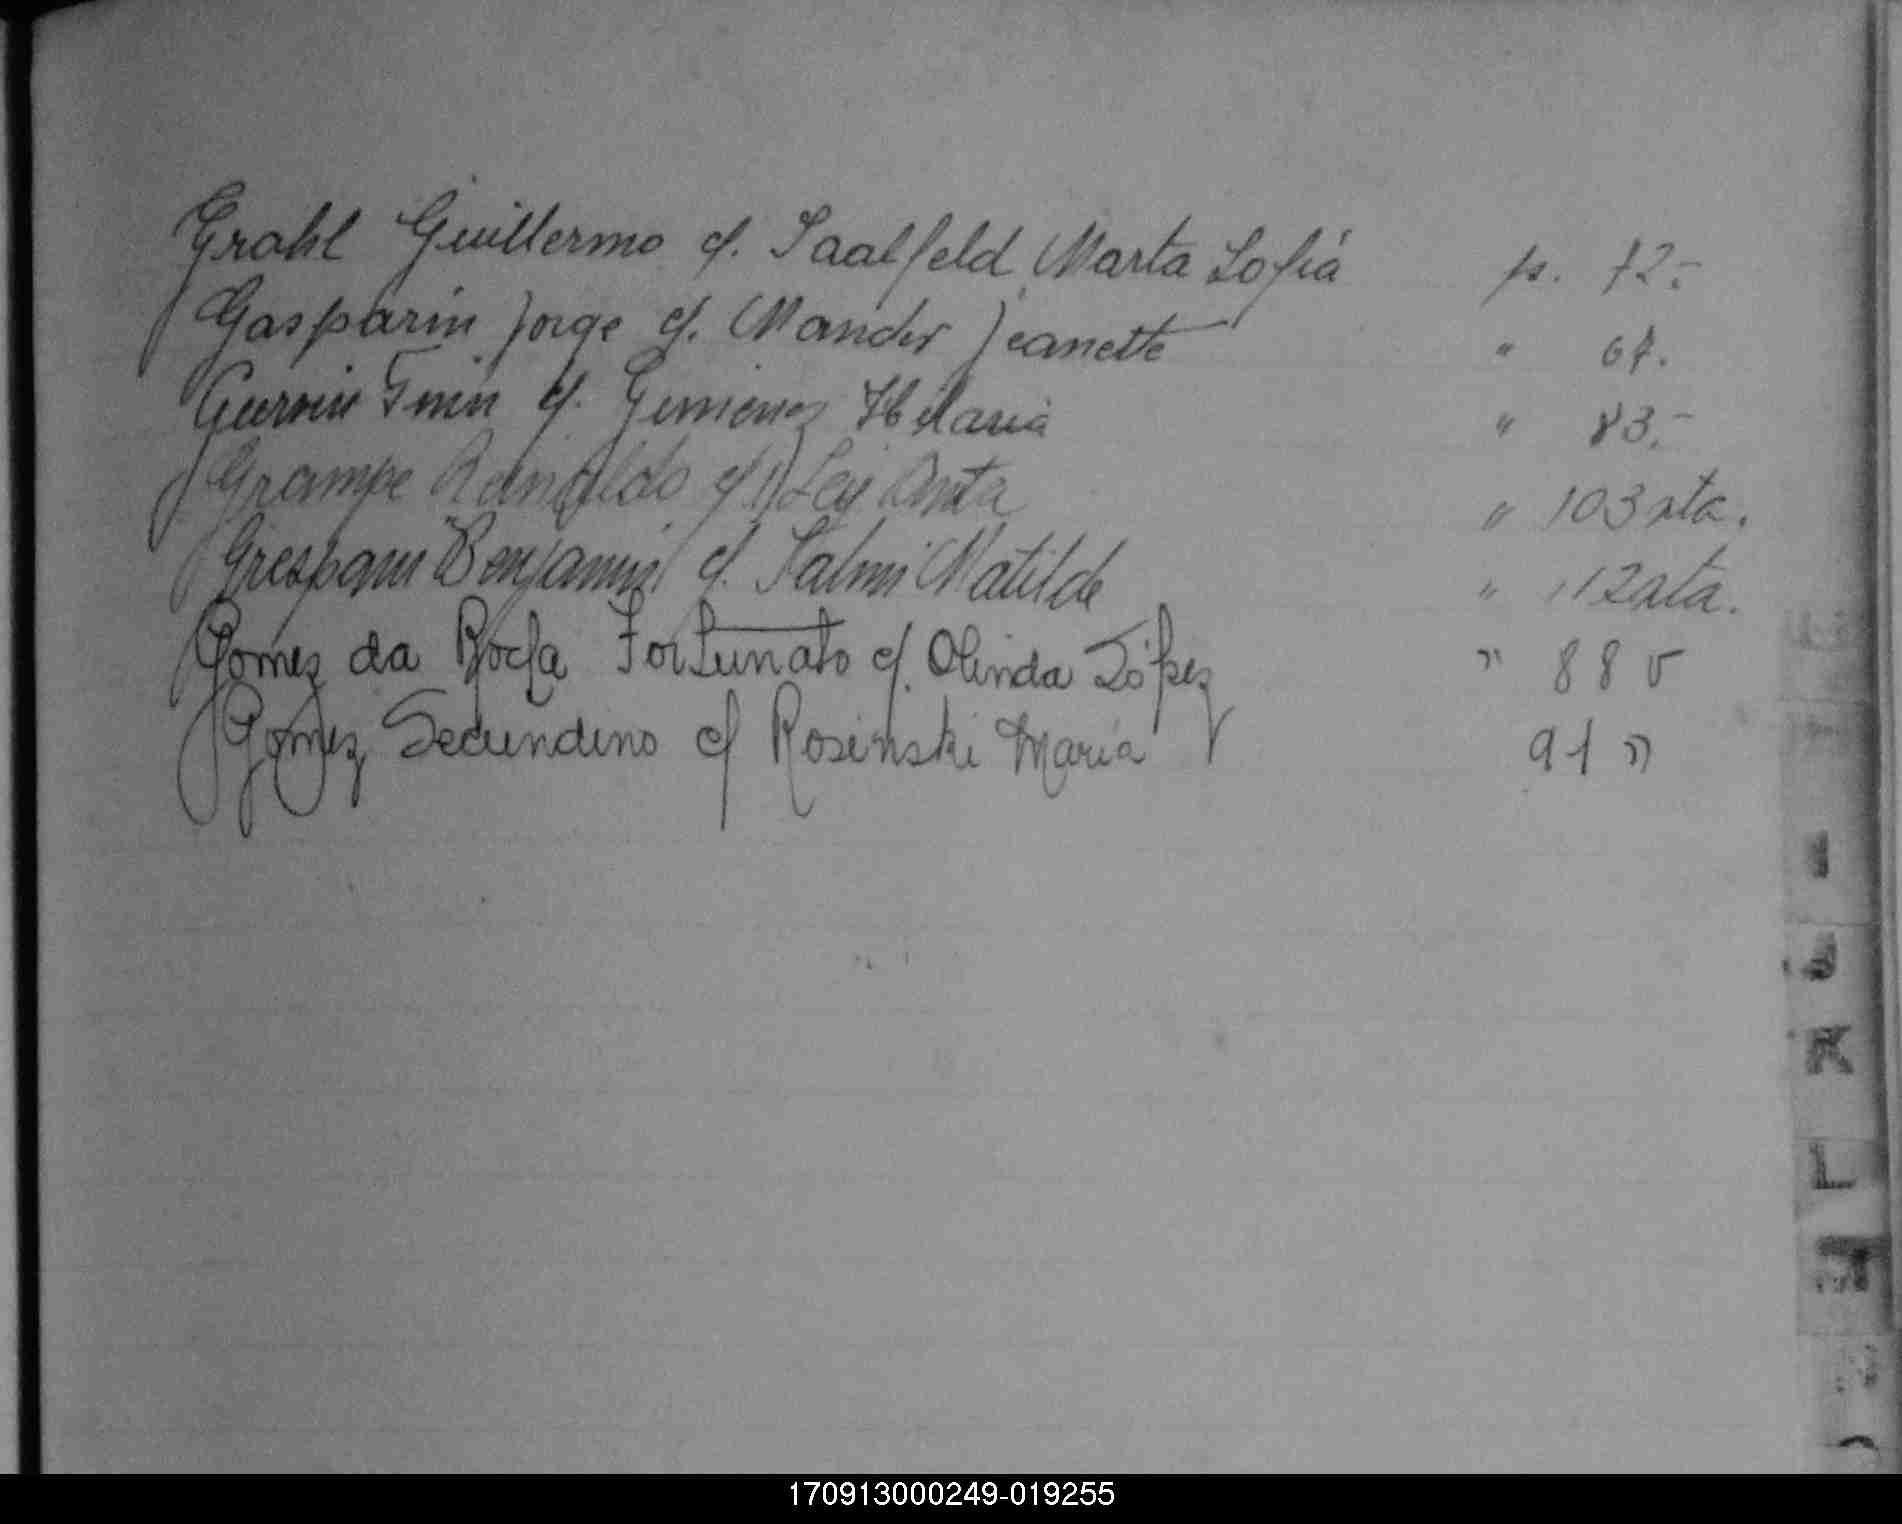 Grahl Guillermo c/. Saalfeld Marta Sofía p. 72.-
Gasparin Jorge c/. Mander Jeanette " 67.
c/. Gimenez Hilaria " 83.-
Grampe Reinaldo c/ Ley Anita " 103 vta.
Grespani Benjamin c/. Salmi Matilde " 112 vta.
Gomez da Rocha Fortunato c/. Olinda López " 88 v
Gomez Secundino c/ Rosinski María 91 "
I
J
K
L
M
N
170913000249-019255